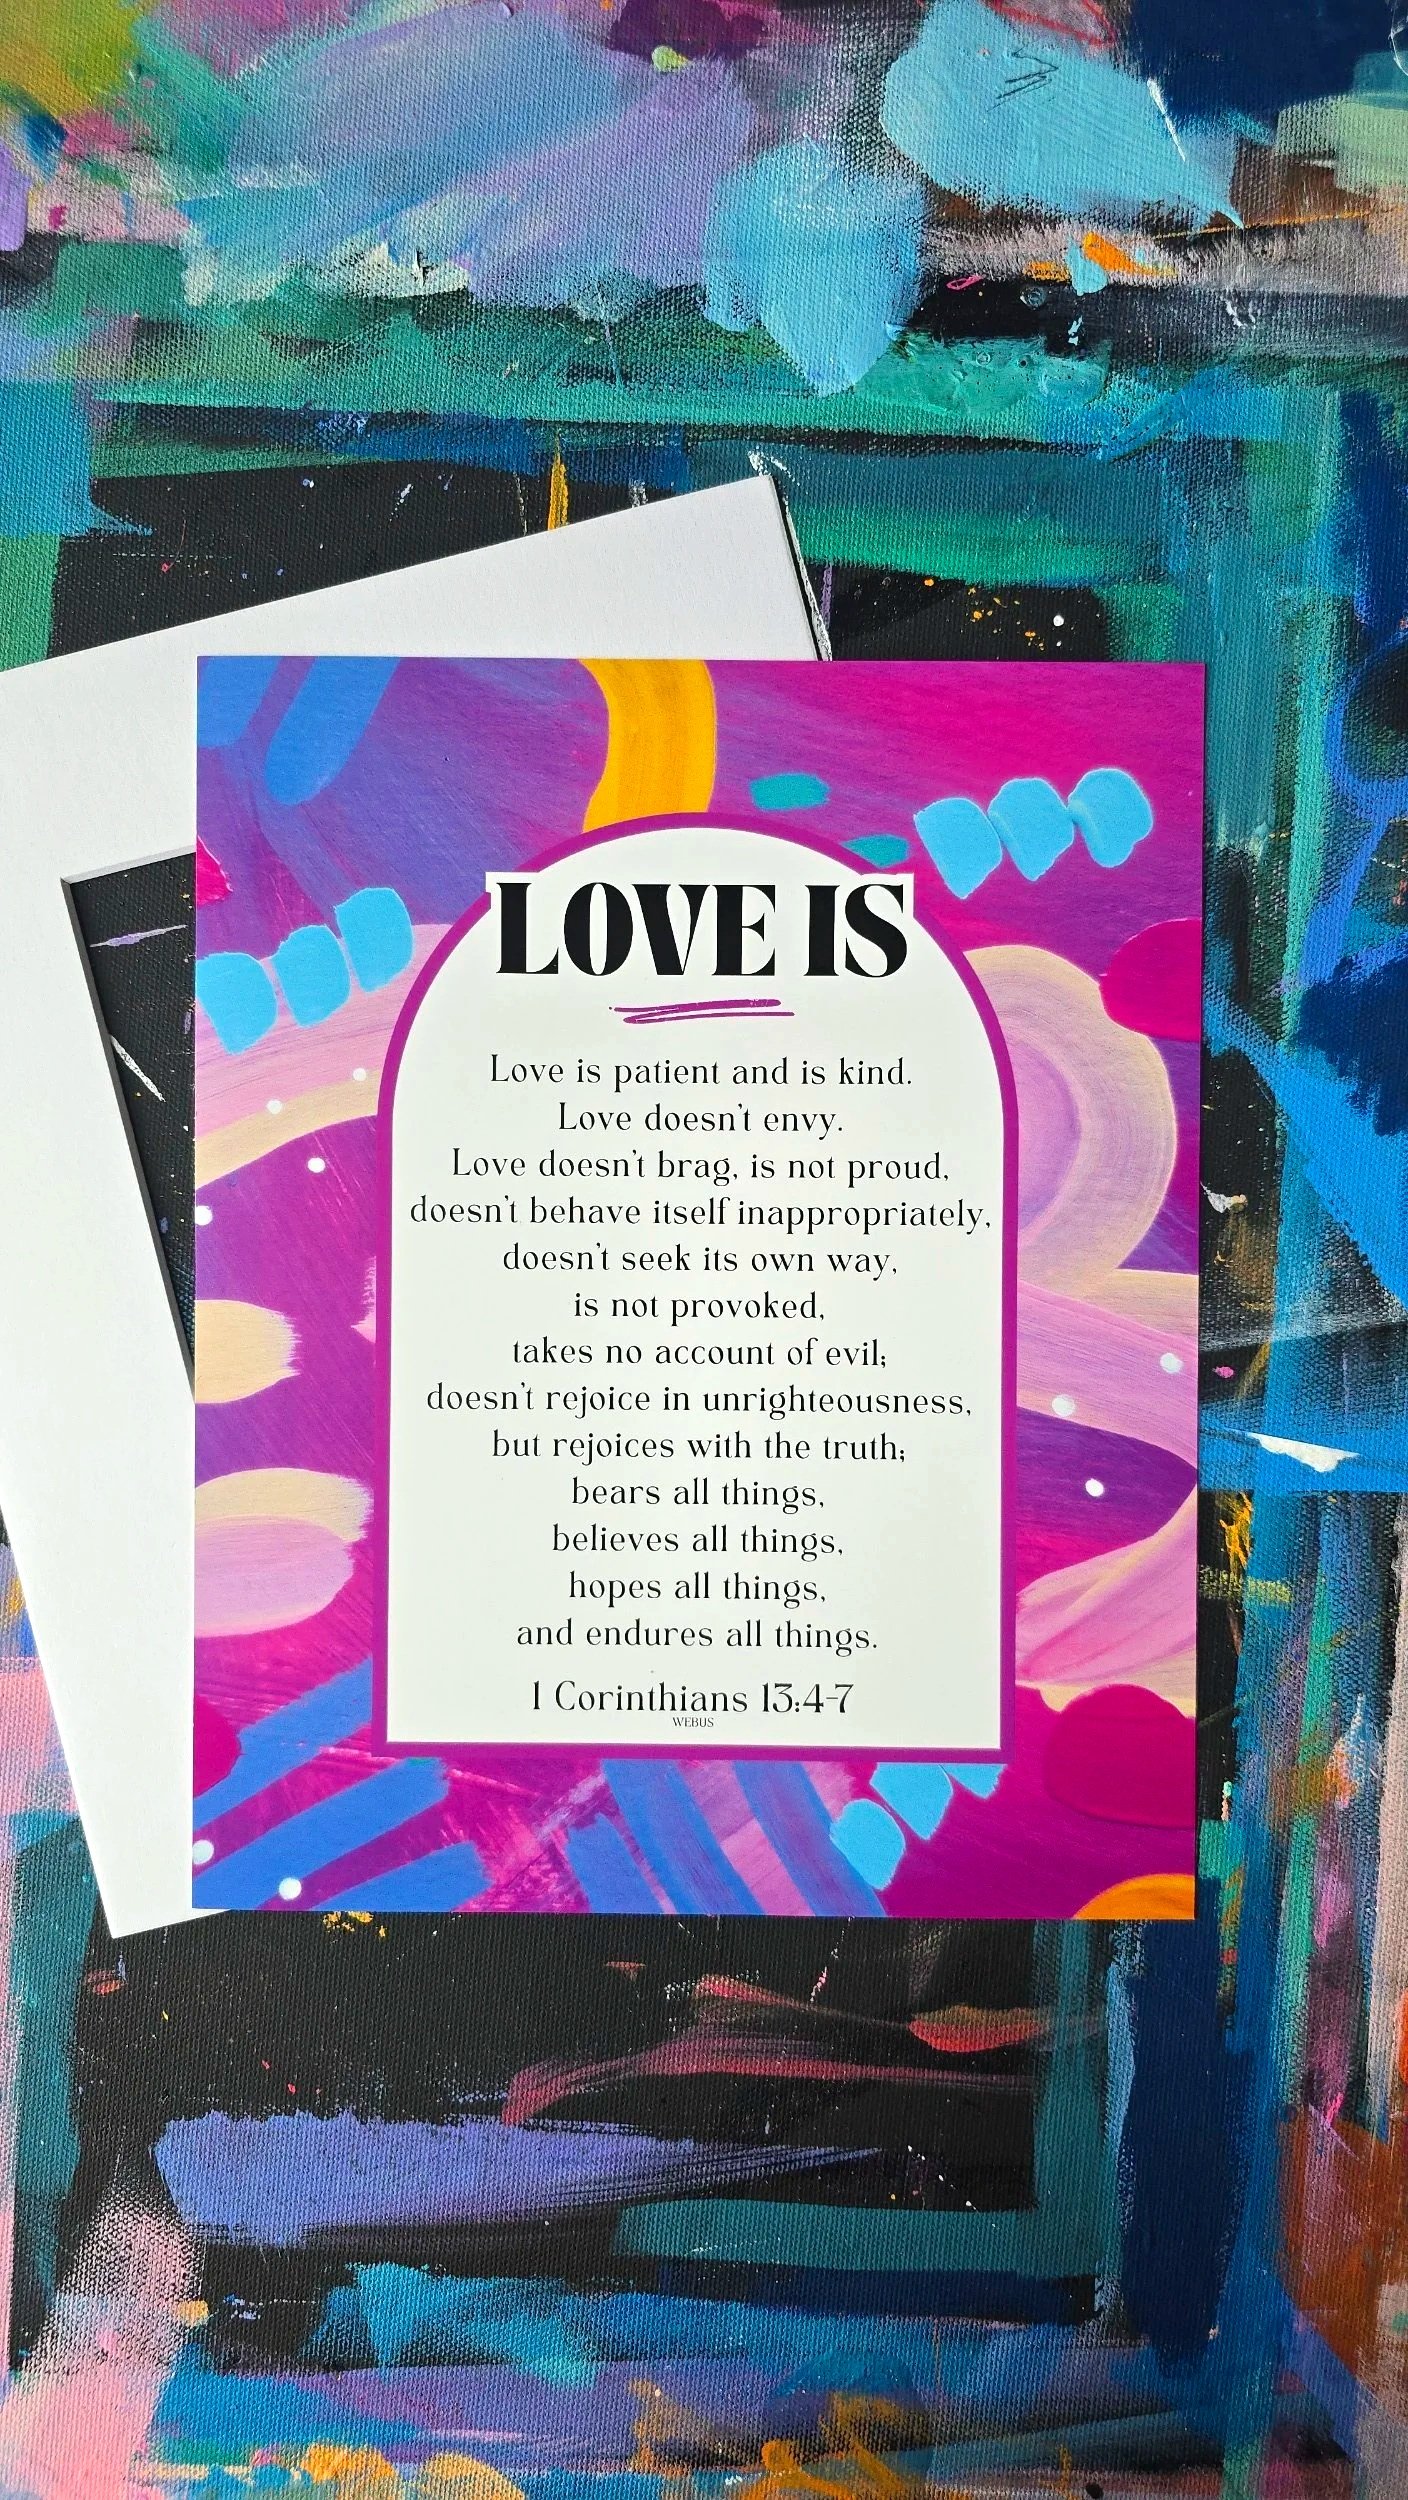 LOVE IS
Love is patient and is kind.
Love doesn't envy.
Love doesn't brag, is not proud,
doesn't behave itself inappropriately,
doesn't seek its own way,
is not provoked,
takes no account of evil;
doesn't rejoice in unrighteousness,
but rejoices with the truth;
bears all things,
believes all things,
hopes all things,
and endures all things.
1 Corinthians 13:4-7
WEBUS